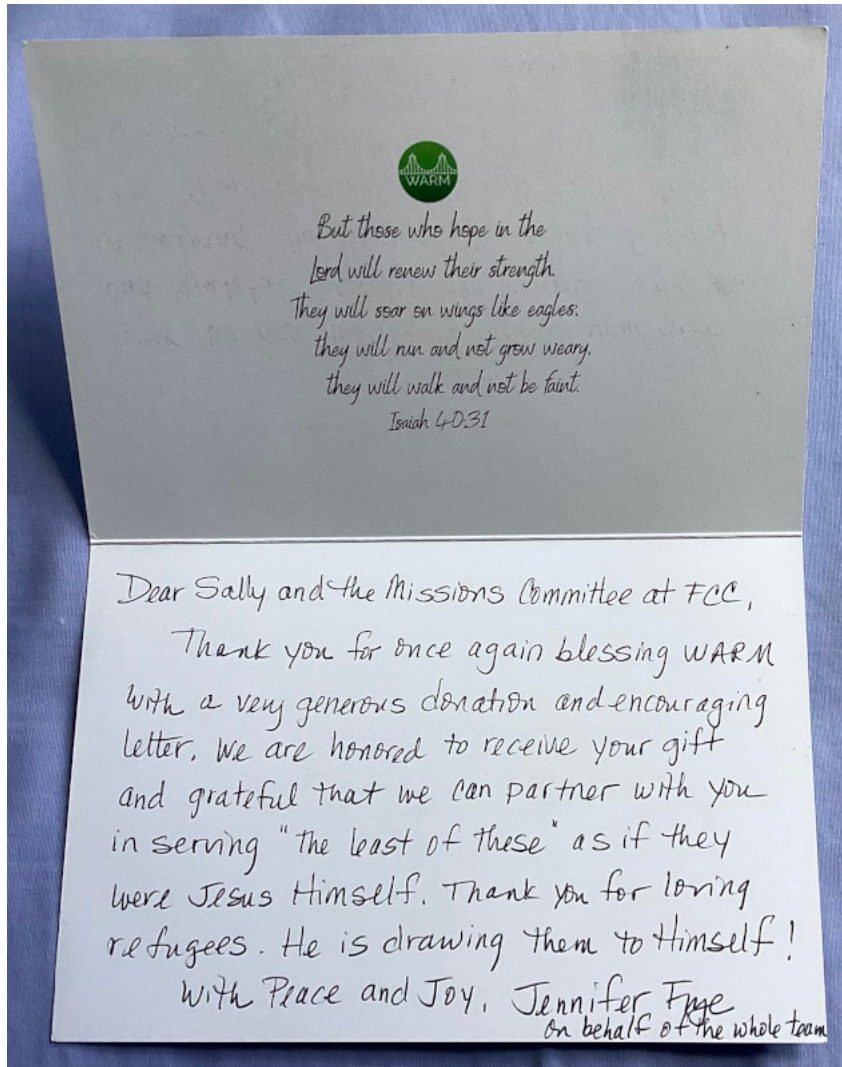 WARM
But those who hope in the
Lord will renew their strength.
They will soar on wings like eagles;
they will run and not grow weary,
they will walk and not be faint.
Isaiah 40:31
Dear Sally and the Missions Committee at FCC,
Thank you for once again blessing WARM
with a very generous donation and encouraging
letter. We are honored to receive your gift
and grateful that we can partner with you
in serving "the least of these" as if they
were Jesus Himself. Thank you for loving
refugees. He is drawing them to Himself!
With Peace and Joy, Jennifer
on behalf of the whole team